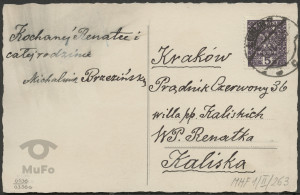 Kochanej Renatce i
całej rodzinie
Michalina Brzezińska
Kraków
Prądnik Czerwony 36
willa pp. Kaliskich
WP. Renatka
Kaliska
15
MuFo
MHF 1/II/263